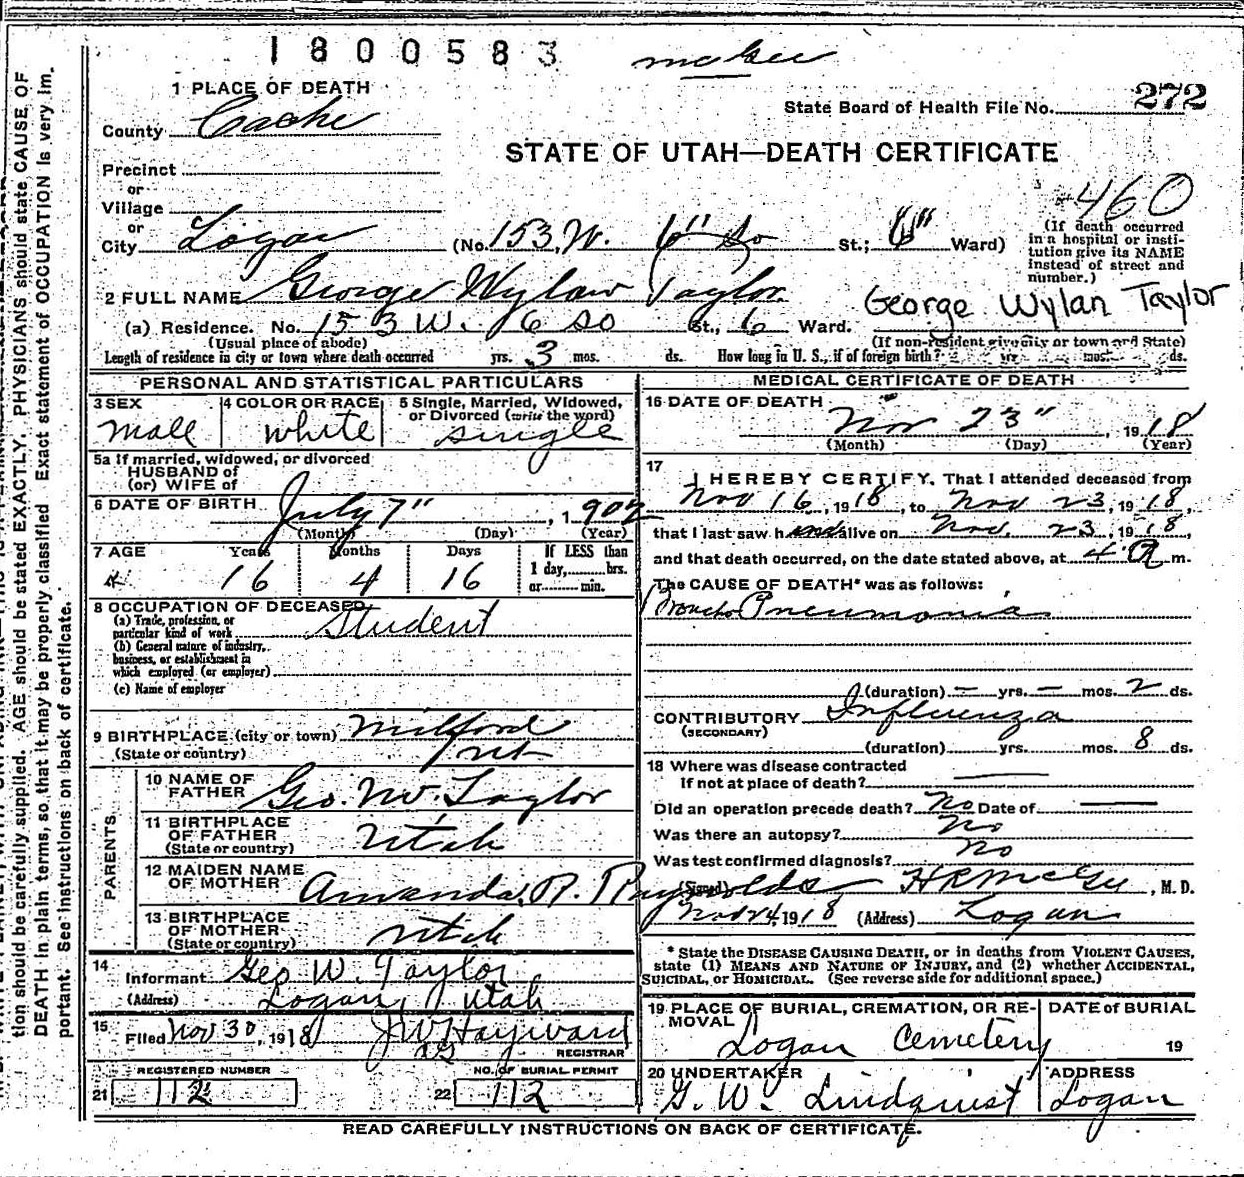 1800583
McGee
1 PLACE OF DEATH
State Board of Health File No. 272
County Cache
STATE OF UTAH—DEATH CERTIFICATE
Precinct
or
Village
or
460
City Logan (No. 153 W. 6" So St.; 6" Ward)
(If death occurred in a hospital or institution give its NAME instead of street and number.)
2 FULL NAME George Wylan Taylor
George Wylan Taylor
(a) Residence. No. 153 W. 6 So St., 6 Ward.
(Usual place of abode) (If non-resident give city or town and State)
Length of residence in city or town where death occurred yrs. 3 mos. ds. How long in U. S., if of foreign birth? yrs. mos. ds.
PERSONAL AND STATISTICAL PARTICULARS
3 SEX Male
4 COLOR OR RACE White
5 Single, Married, Widowed, or Divorced (write the word) Single
5a If married, widowed, or divorced
HUSBAND of
(or) WIFE of
6 DATE OF BIRTH July 7", 1902
(Month) (Day) (Year)
7 AGE Years 16 Months 4 Days 16 If LESS than 1 day, hrs. or min.
8 OCCUPATION OF DECEASED
(a) Trade, profession, or particular kind of work Student
(b) General nature of industry, business, or establishment in which employed (or employer)
(c) Name of employer
9 BIRTHPLACE (city or town) Milford
(State or country) Ut
PARENTS
10 NAME OF FATHER Geo. W. Taylor
11 BIRTHPLACE OF FATHER (State or country) Utah
12 MAIDEN NAME OF MOTHER Amanda R. Reynolds
13 BIRTHPLACE OF MOTHER (State or country) Utah
14 Informant Geo W. Taylor
(Address) Logan, Utah
15 Filed Nov 30, 1918 J W Hayward
REGISTRAR
REGISTERED NUMBER
21 112
NO. OF BURIAL PERMIT
22 112
MEDICAL CERTIFICATE OF DEATH
16 DATE OF DEATH
Nov 23", 1918
(Month) (Day) (Year)
17 I HEREBY CERTIFY, That I attended deceased from
Nov 16, 1918, to Nov 23, 1918,
that I last saw him alive on Nov. 23, 1918,
and that death occurred, on the date stated above, at 4 a m.
The CAUSE OF DEATH* was as follows:
Broncho Pneumonia
(duration) — yrs. — mos. 2 ds.
CONTRIBUTORY Influenza
(SECONDARY)
(duration) yrs. mos. 8 ds.
18 Where was disease contracted
If not at place of death?
Did an operation precede death? No Date of
Was there an autopsy? No
Was test confirmed diagnosis? No
(Signed) H R McGee, M. D.
Nov 24, 1918 (Address) Logan
* State the DISEASE CAUSING DEATH, or in deaths from VIOLENT CAUSES,
state (1) MEANS AND NATURE OF INJURY, and (2) whether ACCIDENTAL,
SUICIDAL, or HOMICIDAL. (See reverse side for additional space.)
19 PLACE OF BURIAL, CREMATION, OR REMOVAL
Logan Cemetery
DATE of BURIAL
19
20 UNDERTAKER
G. W. Lindquist
ADDRESS
Logan
READ CAREFULLY INSTRUCTIONS ON BACK OF CERTIFICATE.
tion should be carefully supplied. AGE should be stated EXACTLY. PHYSICIANS should state CAUSE OF
DEATH in plain terms, so that it may be properly classified. Exact statement of OCCUPATION is very im-
portant. See instructions on back of certificate.